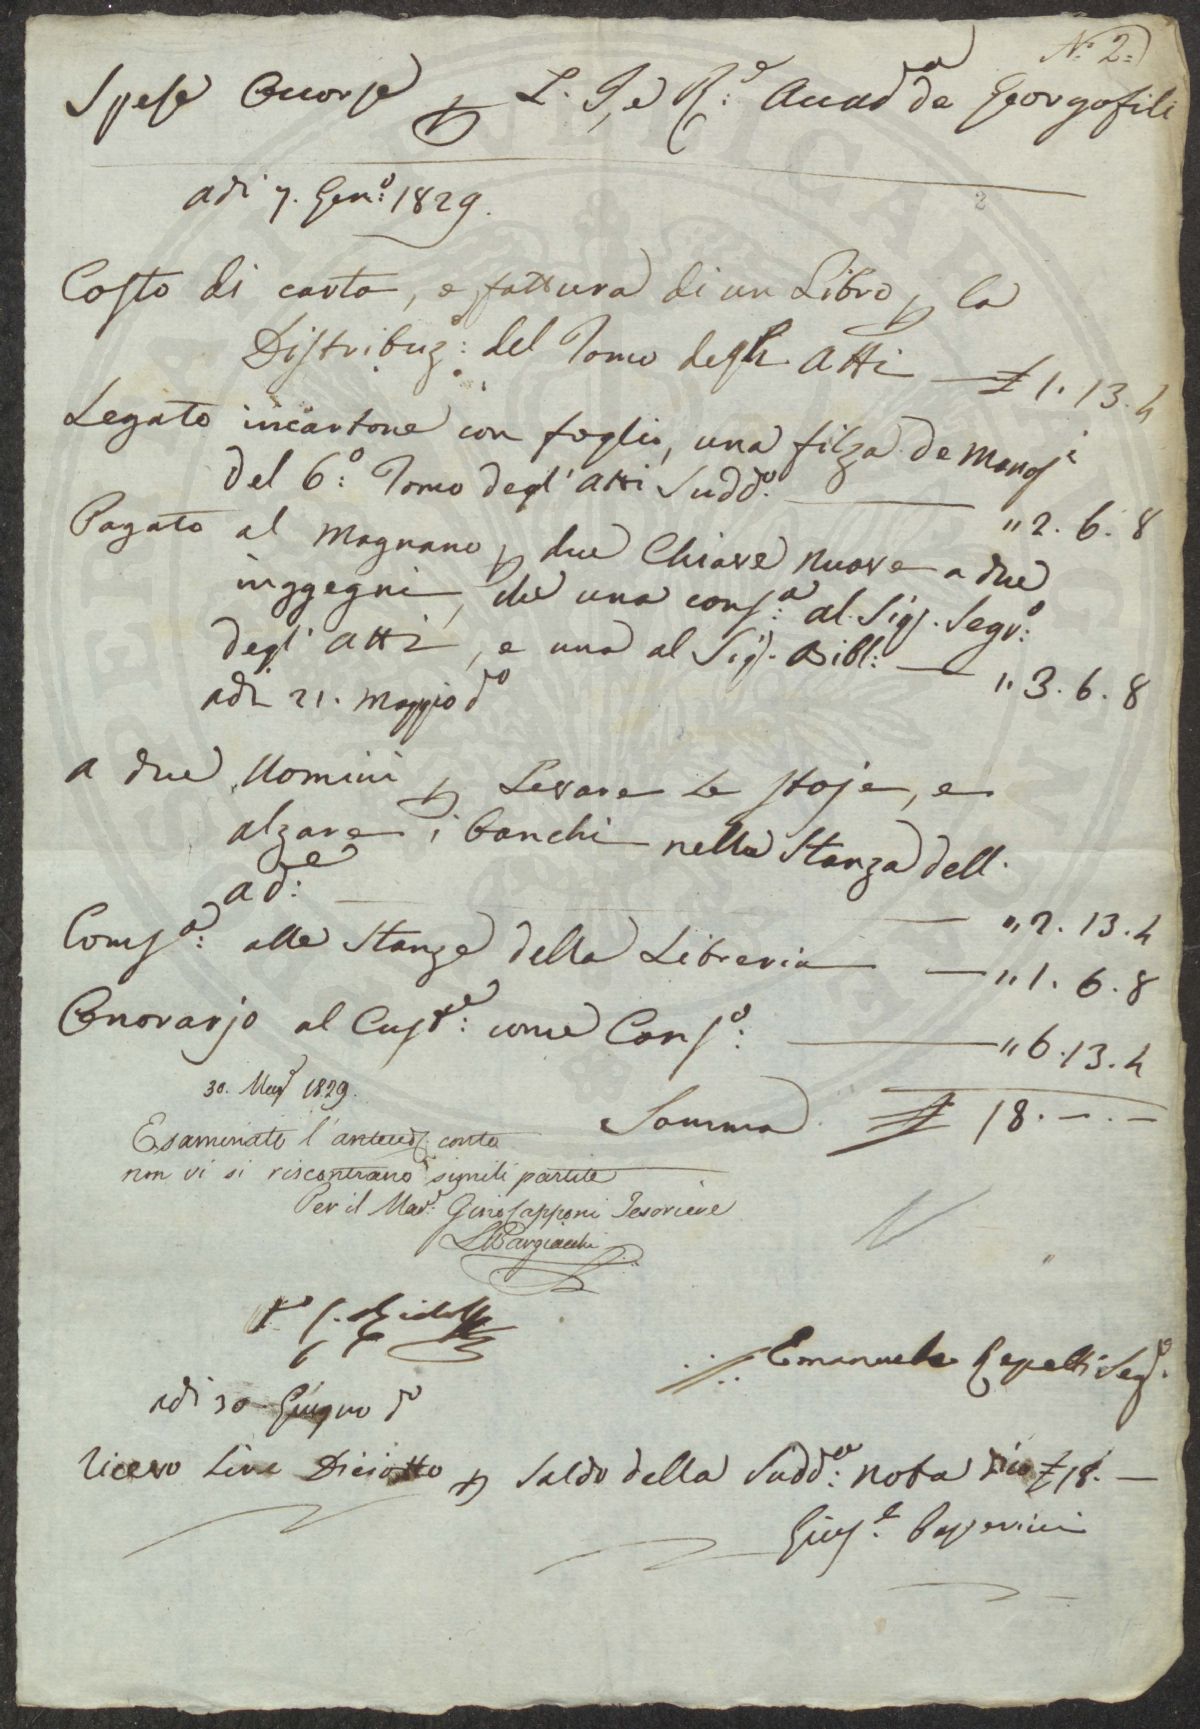 N.° 2.
Spese occorse p L' I, e R.e Accad.a de Georgofili
adi 7. Gen.o 1829.
Costo di carta, e fattura di un Libro p la
Distribuz.e del Tomo degli Atti — £ 1. 13. 4
Legato in cartone con foglio, una filza de Manos.i
del 6.o Tomo degl' Atti Sudd.o — " 2. 6. 8
Pagato al Magnano p due Chiave nuove a due
inggegni, che una cons.a al Sig. Segr.o
degl' Atti, e una al Sig. Bibl: — " 3. 6. 8
adi 21. Maggio d.o
a due Uomini p Levare Le stoje, e
alzare i banchi nella Stanza dell'
ad.e — " 2. 13. 4
Coms.a: alle Stanze della Libreria — " 1. 6. 8
Onorarjo al Cust.e: come Cons.o: — " 6. 13. 4
Somma £ 18. — . —
30. Mag 1829.
Esaminato l'anteced. conto
non vi si riscontrano simili partite
Per il Mar. Gino Capponi Tesoriere
V.o C. Ridolfi
Emanuele Repetti Seg.o
adi 30 Giugno d.o
Ricevo Lire Diciotto p Saldo della Sudd.a: nota Dico £ 18. —
Gius.e Paperini